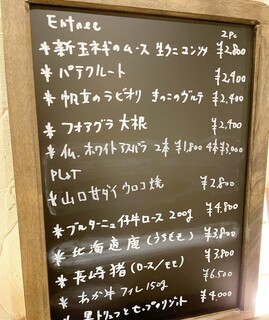 Entree
2Pc
* 新玉ねぎのムース 生ウニ コンソメ ¥2,800
* パテクルート ¥2,400
* 帆立のラビオリ きのこのヴルーテ ¥2,400
* フォアグラ 大根 ¥2,400
* 仏、ホワイトアスパラ 2本 ¥1,800 4本 ¥3,000
PLAT
* 山口甘ダイ ウロコ焼 ¥2,800
* ブルターニュ仔牛ロース 200g ¥4,800
* 北海道鹿(うちもも) ¥3,800
* 長崎猪(ロース/モモ) ¥3,800
* あか牛フィレ 150g ¥6,500
* 黒トリュフとセップのリゾット ¥4,000